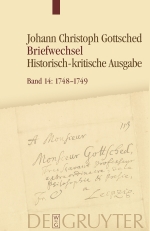 Johann Christoph Gottsched
Briefwechsel
Historisch-kritische Ausgabe
Band 14: 1748–1749
A Monsieur
Monsieur Gottsched
Philosophie
à
Leipzig
DE GRUYTER